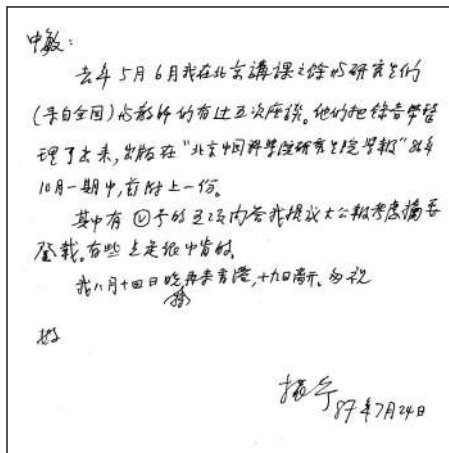 中敏:
去年5月6月我在北京講課之餘与研究生們
(来自全国)与教師們有过五次座談。他們把錄音帶整
理了出来,出版在“北京中国科学院研究生院学報”86年
10月一期中,兹附上一份。
其中有Ⓥ号的五項內容我提议大公報考慮摘要
登載。有些点是很中肯的。
我八月十四日晚将再来香港,十九日离开。匆祝
好
振宁
87年7月24日